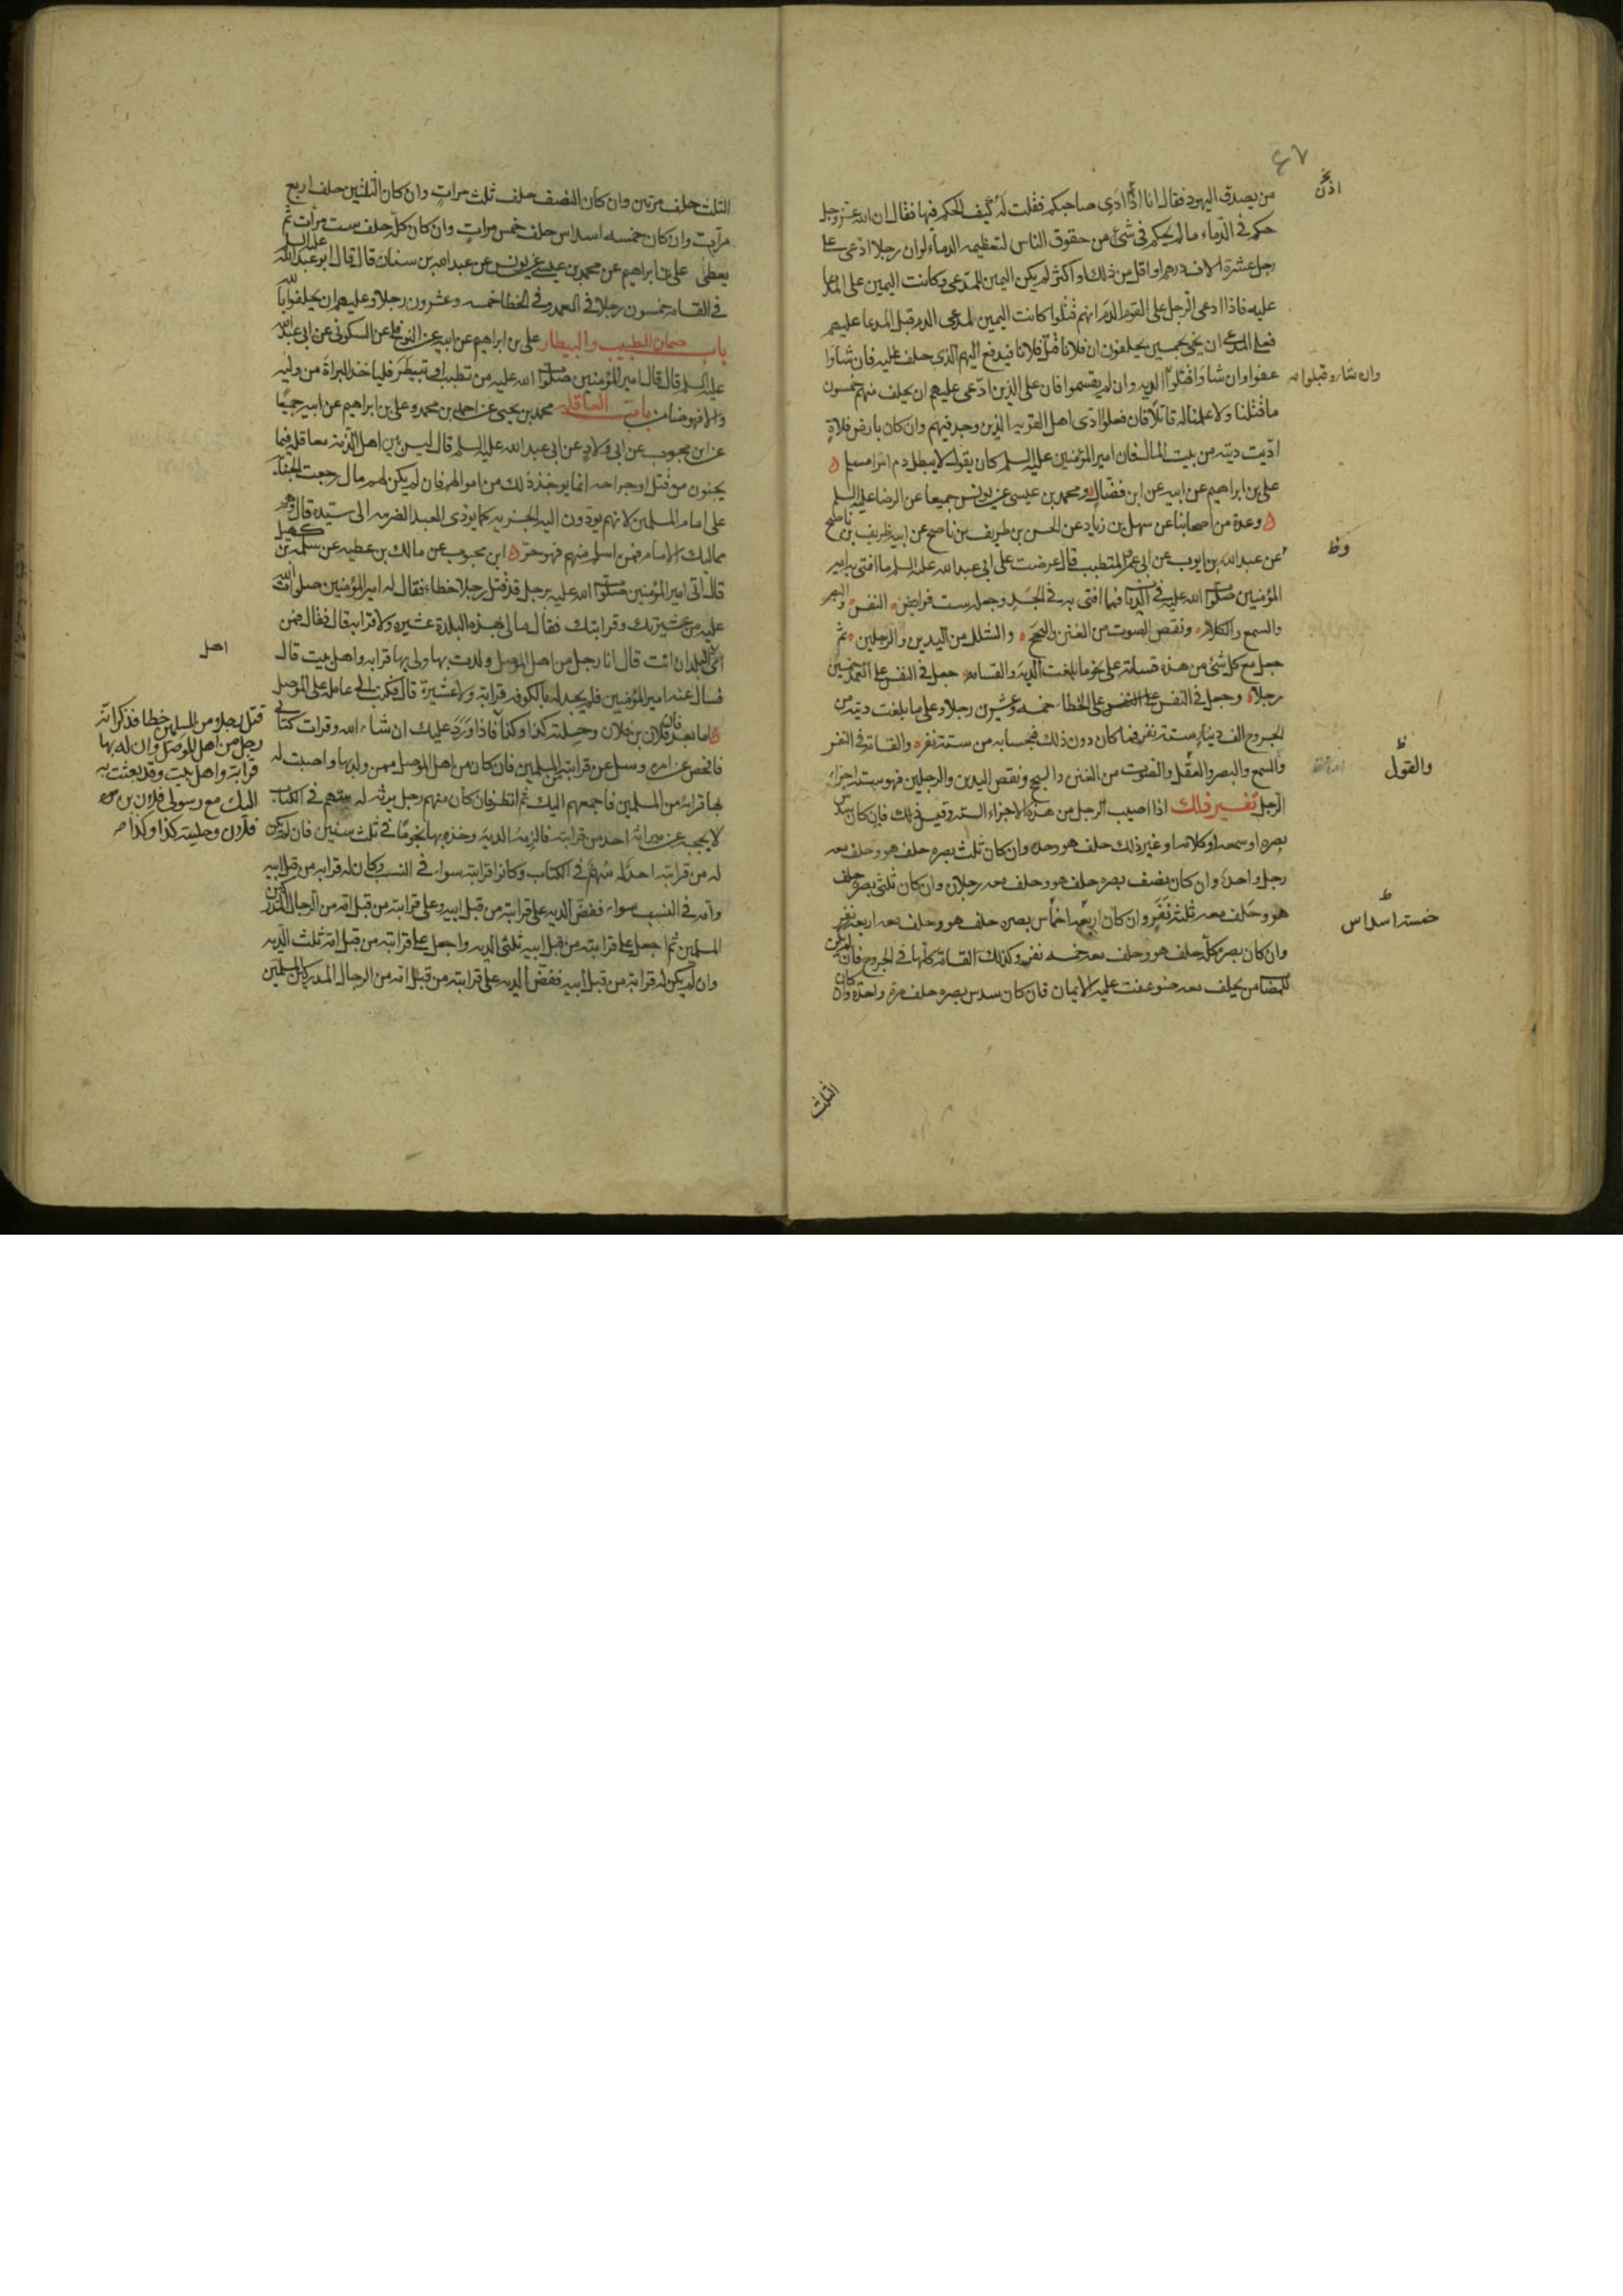 ٤٧
من يصدق اليهود فقال انا اذًا ادى صاحبكم فقلت له كيف الحكم فيها فقال ان الله عز وجل
حكم في الدماء ما لم يحكم في شئ من حقوق الناس لتعظيمه الدماء لو ان رجلا ادعى على
رجل عشرة الاف درهم او اقل من ذلك او اكثر لم يكن اليمين للمدعى وكانت اليمين على المدعا
عليه فاذا ادعى الرجل على القوم الدم انهم قتلوا كانت اليمين لمدعى الدم قبل المدعا عليهم
فعلى المدعى ان يجئ بخمسين يحلفون ان فلانا قتل فلانا فيدفع اليهم الذى حلف عليه فان شاؤا
عفوا وان شاؤا قتلوا الديه وان لم يقسموا فان على الذين ادعى عليهم ان يحلف منهم خمسون
وان شاؤ قبلوا صه
ما قتلنا ولا علمنا له قاتلا فان فعلوا ادى اهل القريه الذين وجد فيهم وان كان بارض فلاة
اديت ديته من بيت المال فان امير المؤمنين عليه السلم كان يقول لا يبطل دم امرا مسلم
على بن ابراهيم عن ابيه عن ابن فضال و محمد بن عيسى عن يونس جميعا عن الرضا عليه السلم
وعدة من اصحابنا عن سهل بن زياد عن الحسن بن ظريف بن ناصح عن ابيه ظريف بن ناصح
عن عبد الله بن ايوب عن ابى عمر المتطبب قال عرضت على ابى عبد الله عليه السلم ما افتى به امير
المؤمنين صلوات الله عليه في الديات فمما افتى به في الجسد وجعله ست فرايض النفس والبصر
والسمع والكلام ونقص الصوت من الغنن والبحح والشلل من اليدين والرجلين ثم
جعل مع كل شئ من هذه قسامة على نحو ما بلغت الديه والقسامه جعل في النفس على العمد خمسين
رجلا وجعل في النفس على الخطاء خمسه وعشرين رجلا وعلى ما بلغت ديته من
الجروح الف دينار ستة نفر فما كان دون ذلك فحسابه من ستة نفر والقسامة في النفس
والسمع والبصر والعقل والصوت من الغنن والبحح ونقص اليدين والرجلين فهو ستة اجزاء
والقول
الرجل تفسير ذلك اذا اصيب الرجل من هذه الاجزاء الستة وقيس ذلك فان كان سدس
بصره او سمعه او كلامه او غير ذلك حلف هو وحده وان كان ثلث بصره حلف هو وحلف معه
رجل واحد وان كان نصف بصره حلف هو وحلف معه رجلان وان كان ثلثى بصره حلف
هو وحلف معه ثلثة نفر وان كان اربعه اخماس بصره حلف هو وحلف معه اربعة نفر
خمسة اسداس
وان كان بصره كله حلف هو وحلف معه خمسه نفر وكذلك القسامة كلها في الجروح فان لم يكن
للمصاب من يحلف معه ضوعفت عليه الايمان فان كان سدس بصره حلف مرة واحدة وان كان
الثلث
الثلث حلف مرتين وان كان النصف حلف ثلث مرات وان كان الثلثين حلف اربع
مرات وان كان خمسه اسداس حلف خمس مرات وان كان كله حلف ست مرات ثم
يعطى على بن ابراهيم عن محمد بن عيسى عن يونس عن عبد الله بن سنان قال قال ابو عبد الله عليه السلم
في القسامة خمسون رجلا في العمد وفي الخطا خمسه وعشرون رجلا وعليهم ان يحلفوا بالله
باب ضمان الطبيب والبيطار على بن ابراهيم عن ابيه عن النوفلى عن السكونى عن ابى عبد الله
عليه السلم قال قال امير المؤمنين صلوات الله عليه من تطبب او تبيطر فلياخذ البراة من وليه
والا فهو ضامن باب العاقله محمد بن يحيى عن احمد بن محمد وعلى بن ابراهيم عن ابيه جميعًا
عن ابن محبوب عن ابى ولاد عن ابى عبد الله عليه السلم قال ليس بين اهل الذمة معاقله فيما
يجنون من قتل او جراحه انما يوخذ ذلك من اموالهم فان لم يكن لهم مال رجعت الجناية
على امام المسلمين لانهم يودون اليه الجزيه كما يودى العبد الضريبه الى سيده قال وهم
مماليك الامام فمن اسلم منهم فهو حر ابن محبوب عن مالك بن عطيه عن سلمة بن كهيل
قال اتى امير المؤمنين صلوات الله عليه برجل قد قتل رجلا خطاء فقال له امير المؤمنين صلوات الله
عليه من عشيرتك وقرابتك فقال مالى بهذه البلدة عشيره ولا قرابه قال فقال فمن
اى البلدان انت قال انا رجل من اهل الموصل ولدت بها ولى بها قرابه واهل بيت قال
اهل
فسال عنه امير المؤمنين فلم يجد له بالكوفه قرابة ولا عشيرة قال فكتب الى عامله على الموصل
اما بعد فان فلان بن فلان وحليته كذا وكذا فاذا ورد عليك ان شاء الله وقرات كتابى
قتل رجلا من المسلمين خطا فذكر انه
رجل من اهل الموصل وان له بها
قرابة واهل بيت وقد بعثت به
اليك مع رسولى فلان بن
فلان وحليته كذا وكذا صه
فافحص عن امره وسل عن قرابته من المسلمين فان كان من اهل الموصل ممن ولد بها واصبت له
بها قرابة من المسلمين فاجمعهم اليك ثم انظر فان كان منهم رجل يرثه له سهم في الكتاب
لا يحجبه عن ميراثه احد من قرابته فالزمه الدية وخذه بها نجومًا في ثلث سنين فان لم يكن
له من قرابته احد له سهم في الكتاب وكانوا قرابته سواء في النسب وكان له قرابه من قبل ابيه
وامه في النسب سواء ففض الديه على قرابته من قبل ابيه وعلى قرابته من قبل امه من الرجال المدركين
المسلمين ثم اجعل على قرابته من قبل ابيه ثلثى الديه واجعل على قرابته من قبل امه ثلث الديه
وان لم يكن له قرابة من قبل ابيه ففض الديه على قرابته من قبل امه من الرجال المدركين المسلمين